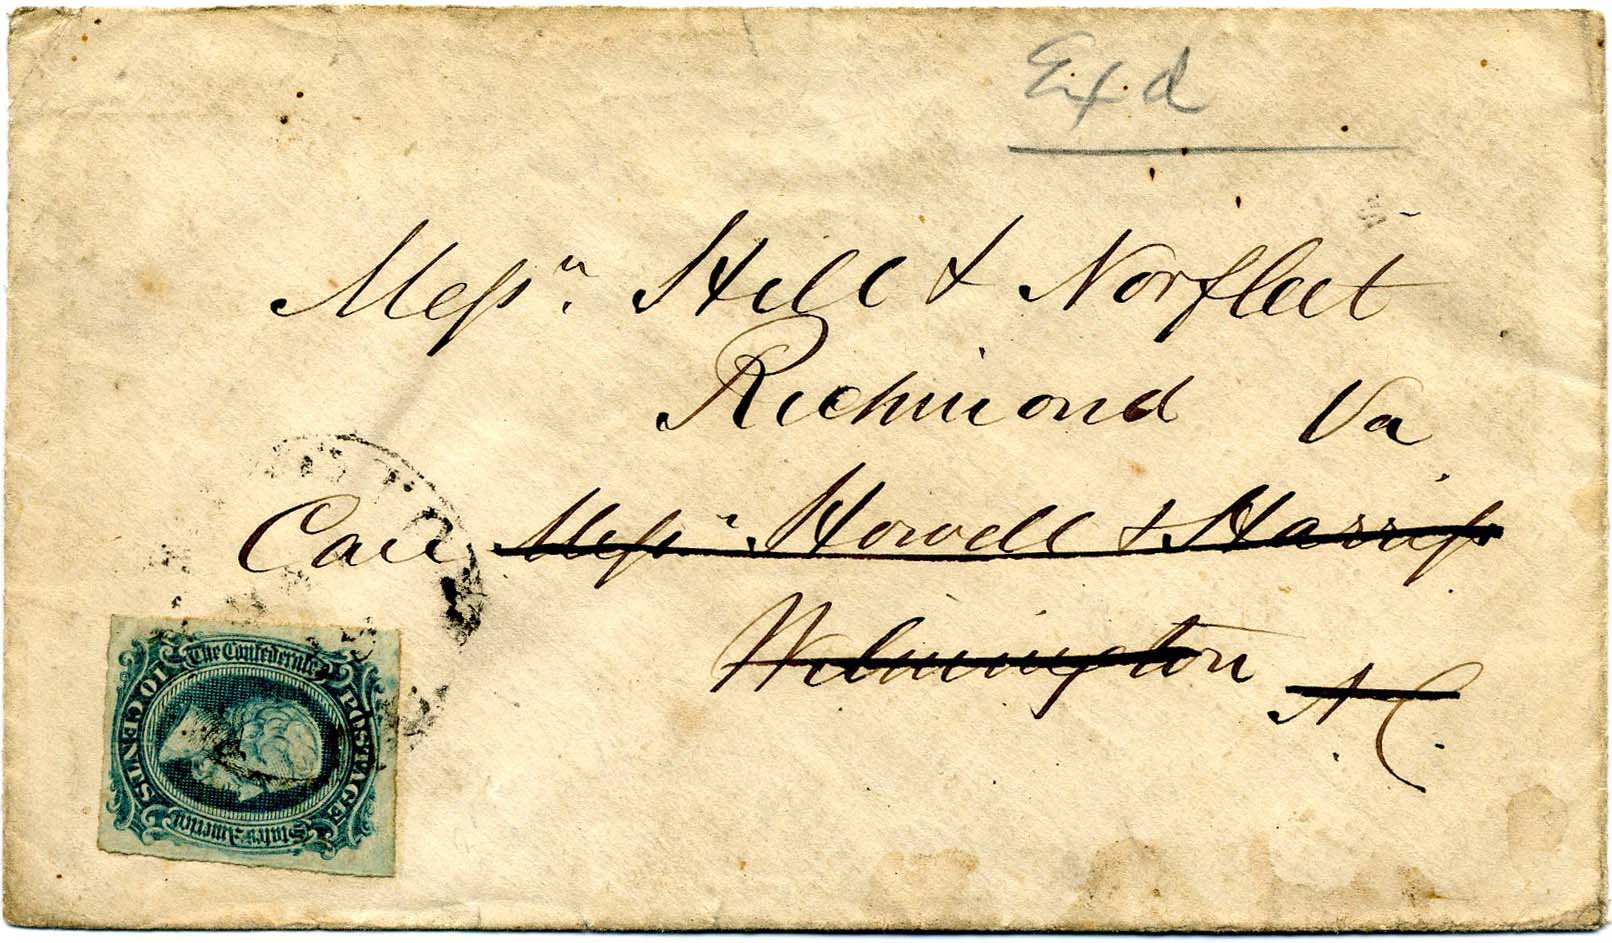 Exd
Messrs. Hill & Norfleet
Richmond Va
Care Messrs. Howell & Harriss
Wilmington N.C.
The Confederate
States of America
POSTAGE
10 CENTS